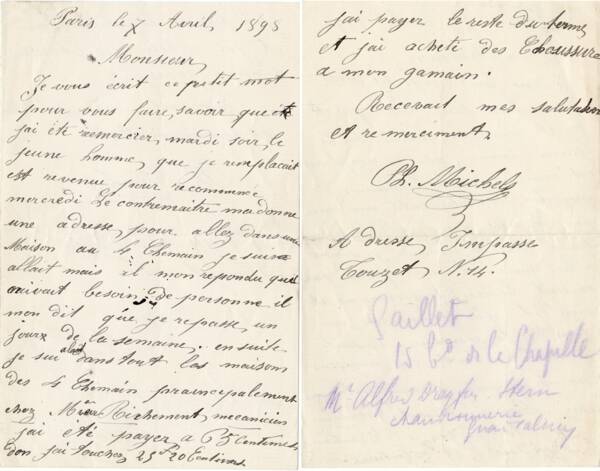 Paris le 7 Avril 1898
Monsieur
Je vous écrit ce petit mot
pour vous faire savoir que
j'ai été remercier, mardi soir, le
jeune homme, que je remplacait
est revenue pour recommencé
mercredi Le contremaitre ma donne
une adresse pour allez dans une
Maison au 4 Chemain je suis
allait mais il mon repondu qu'il
avait besoin de personne il
mon dit que je repasse un
jours de la semaine. en suite
je sui allait dans tout las maisons
des 4 Chemain praincipalement
chez Richement mecanicien
j'ai été payer a 65 Centimes
don j'ai toucher 25f 20 Centimes
j'ai payer le reste du terme
et j'ai acheté des Chaussure
a mon gamain.
Recevait mes salutation
et remerciment
Ph. Michels
Adresse Impasse
Touzet N. 14.
Gaillet
15 Bd de la Chapelle
Mr Alfred Dreyfus Stern
chaudronnerie
quai Valmy